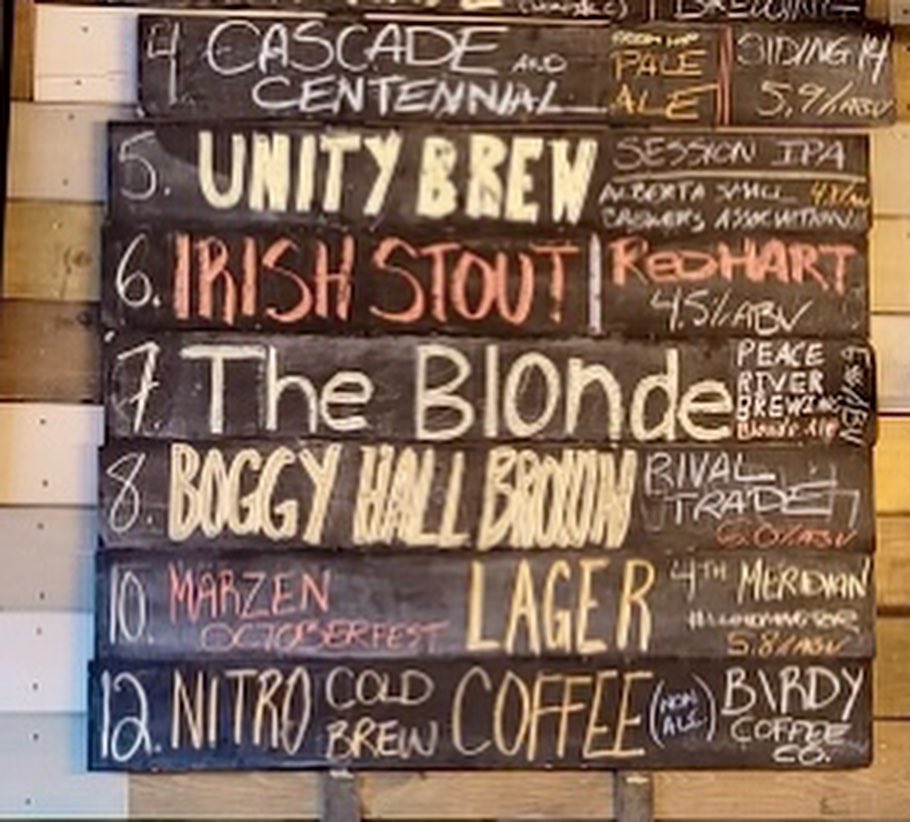 BREWING
4 CASCADE AND CENTENNIAL PALE ALE SIDING 14 5.9% ABV
5. UNITY BREW SESSION IPA
ALBERTA SMALL BREWERS ASSOCIATION
6. IRISH STOUT REDHART
4.5% ABV
7. The Blonde PEACE RIVER BREWING Blonde Ale
8. BOGGY HALL BROWN RIVAL TRADE
6.0% ABV
10. MARZEN OCTOBERFEST LAGER 4TH MERIDIAN
5.8% ABV
12. NITRO COLD BREW COFFEE (NON ALC.) BIRDY COFFEE CO.